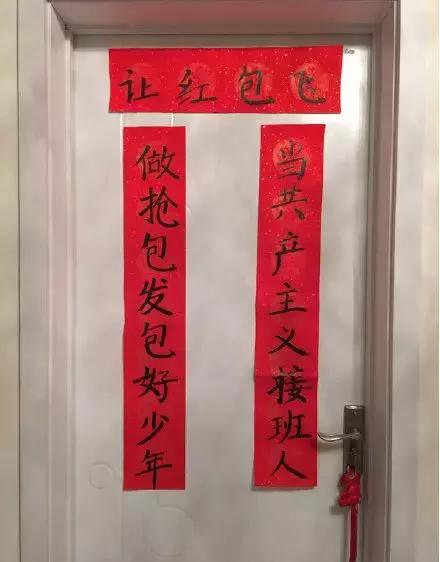 让红包飞
做抢包发包好少年
当共产主义接班人